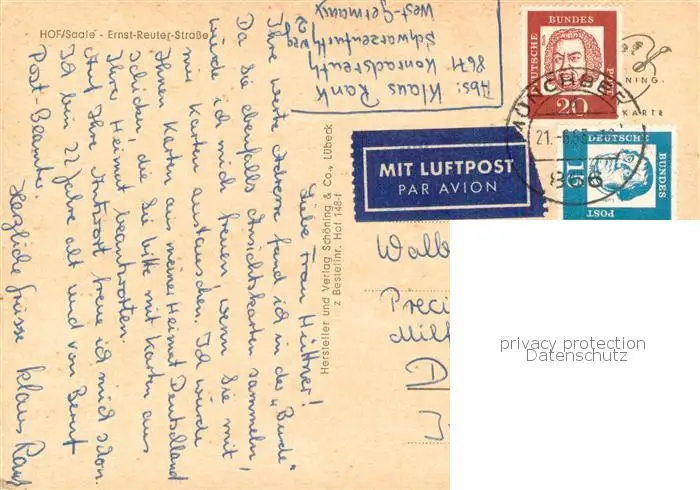 HOF/Saale - Ernst-Reuter-Straße
Liebe Frau Hüttner!
Ihre werte Adresse fand ich in der „Burda“
Da Sie ebenfalls Ansichtskarten sammeln,
würde ich mich freuen wenn Sie mit
mir Karten austauschen. Ich würde
Ihnen Karten aus meiner Heimat Deutschland
schicken, die Sie bitte mit Karten aus
Ihrer Heimat beantworten.
Auf Ihre Antwort freue ich mich schon.
Ich bin 22 Jahre alt und von Beruf
Post-Beamte.
Herzliche Grüsse Klaus Rank
Abs: Klaus Rank
8671 Konradsreuth
Schwarzenfurth
West-Germany
Hersteller und Verlag Schöning & Co., Lübeck
z Bestellnr. Hof 148-f
MIT LUFTPOST
PAR AVION
DEUTSCHE
BUNDES
POST
20
MÜNCHBERG
21.-6.63
866
NING.
KARTE
DEUTSCHE
BUNDES
POST
15
Walb
Preci
privacy protection
Datenschutz